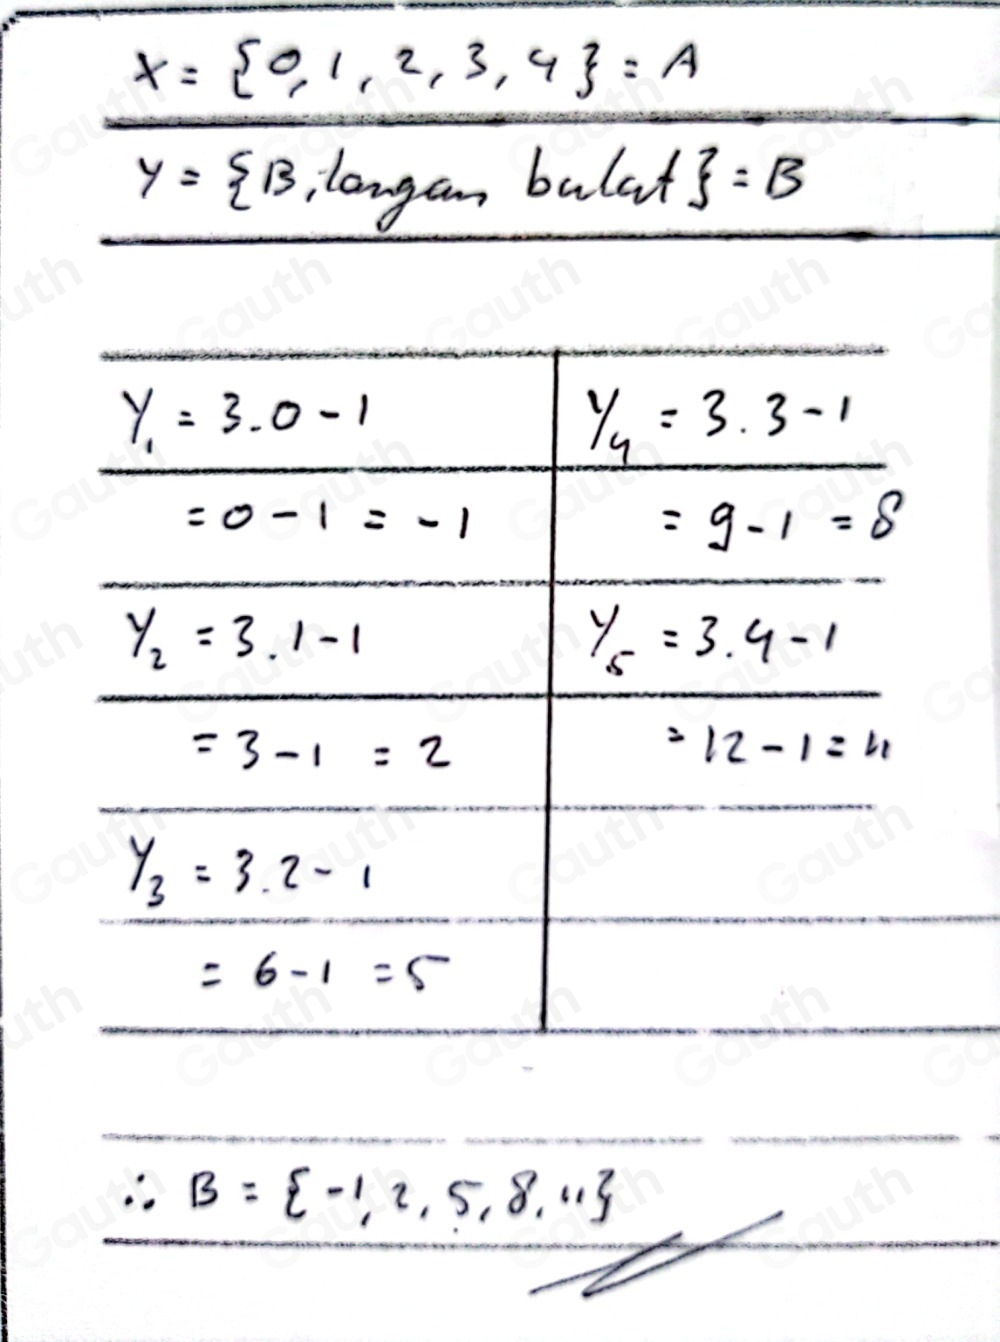 X = {0, 1, 2, 3, 4} = A
Y = {Bilangan bulat} = B
Y₁ = 3.0 - 1
= 0 - 1 = -1
Y₂ = 3.1 - 1
= 3 - 1 = 2
Y₃ = 3.2 - 1
= 6 - 1 = 5
Y₄ = 3.3 - 1
= 9 - 1 = 8
Y₅ = 3.4 - 1
= 12 - 1 = 11
∴ B = {-1, 2, 5, 8, 11}
Gauth